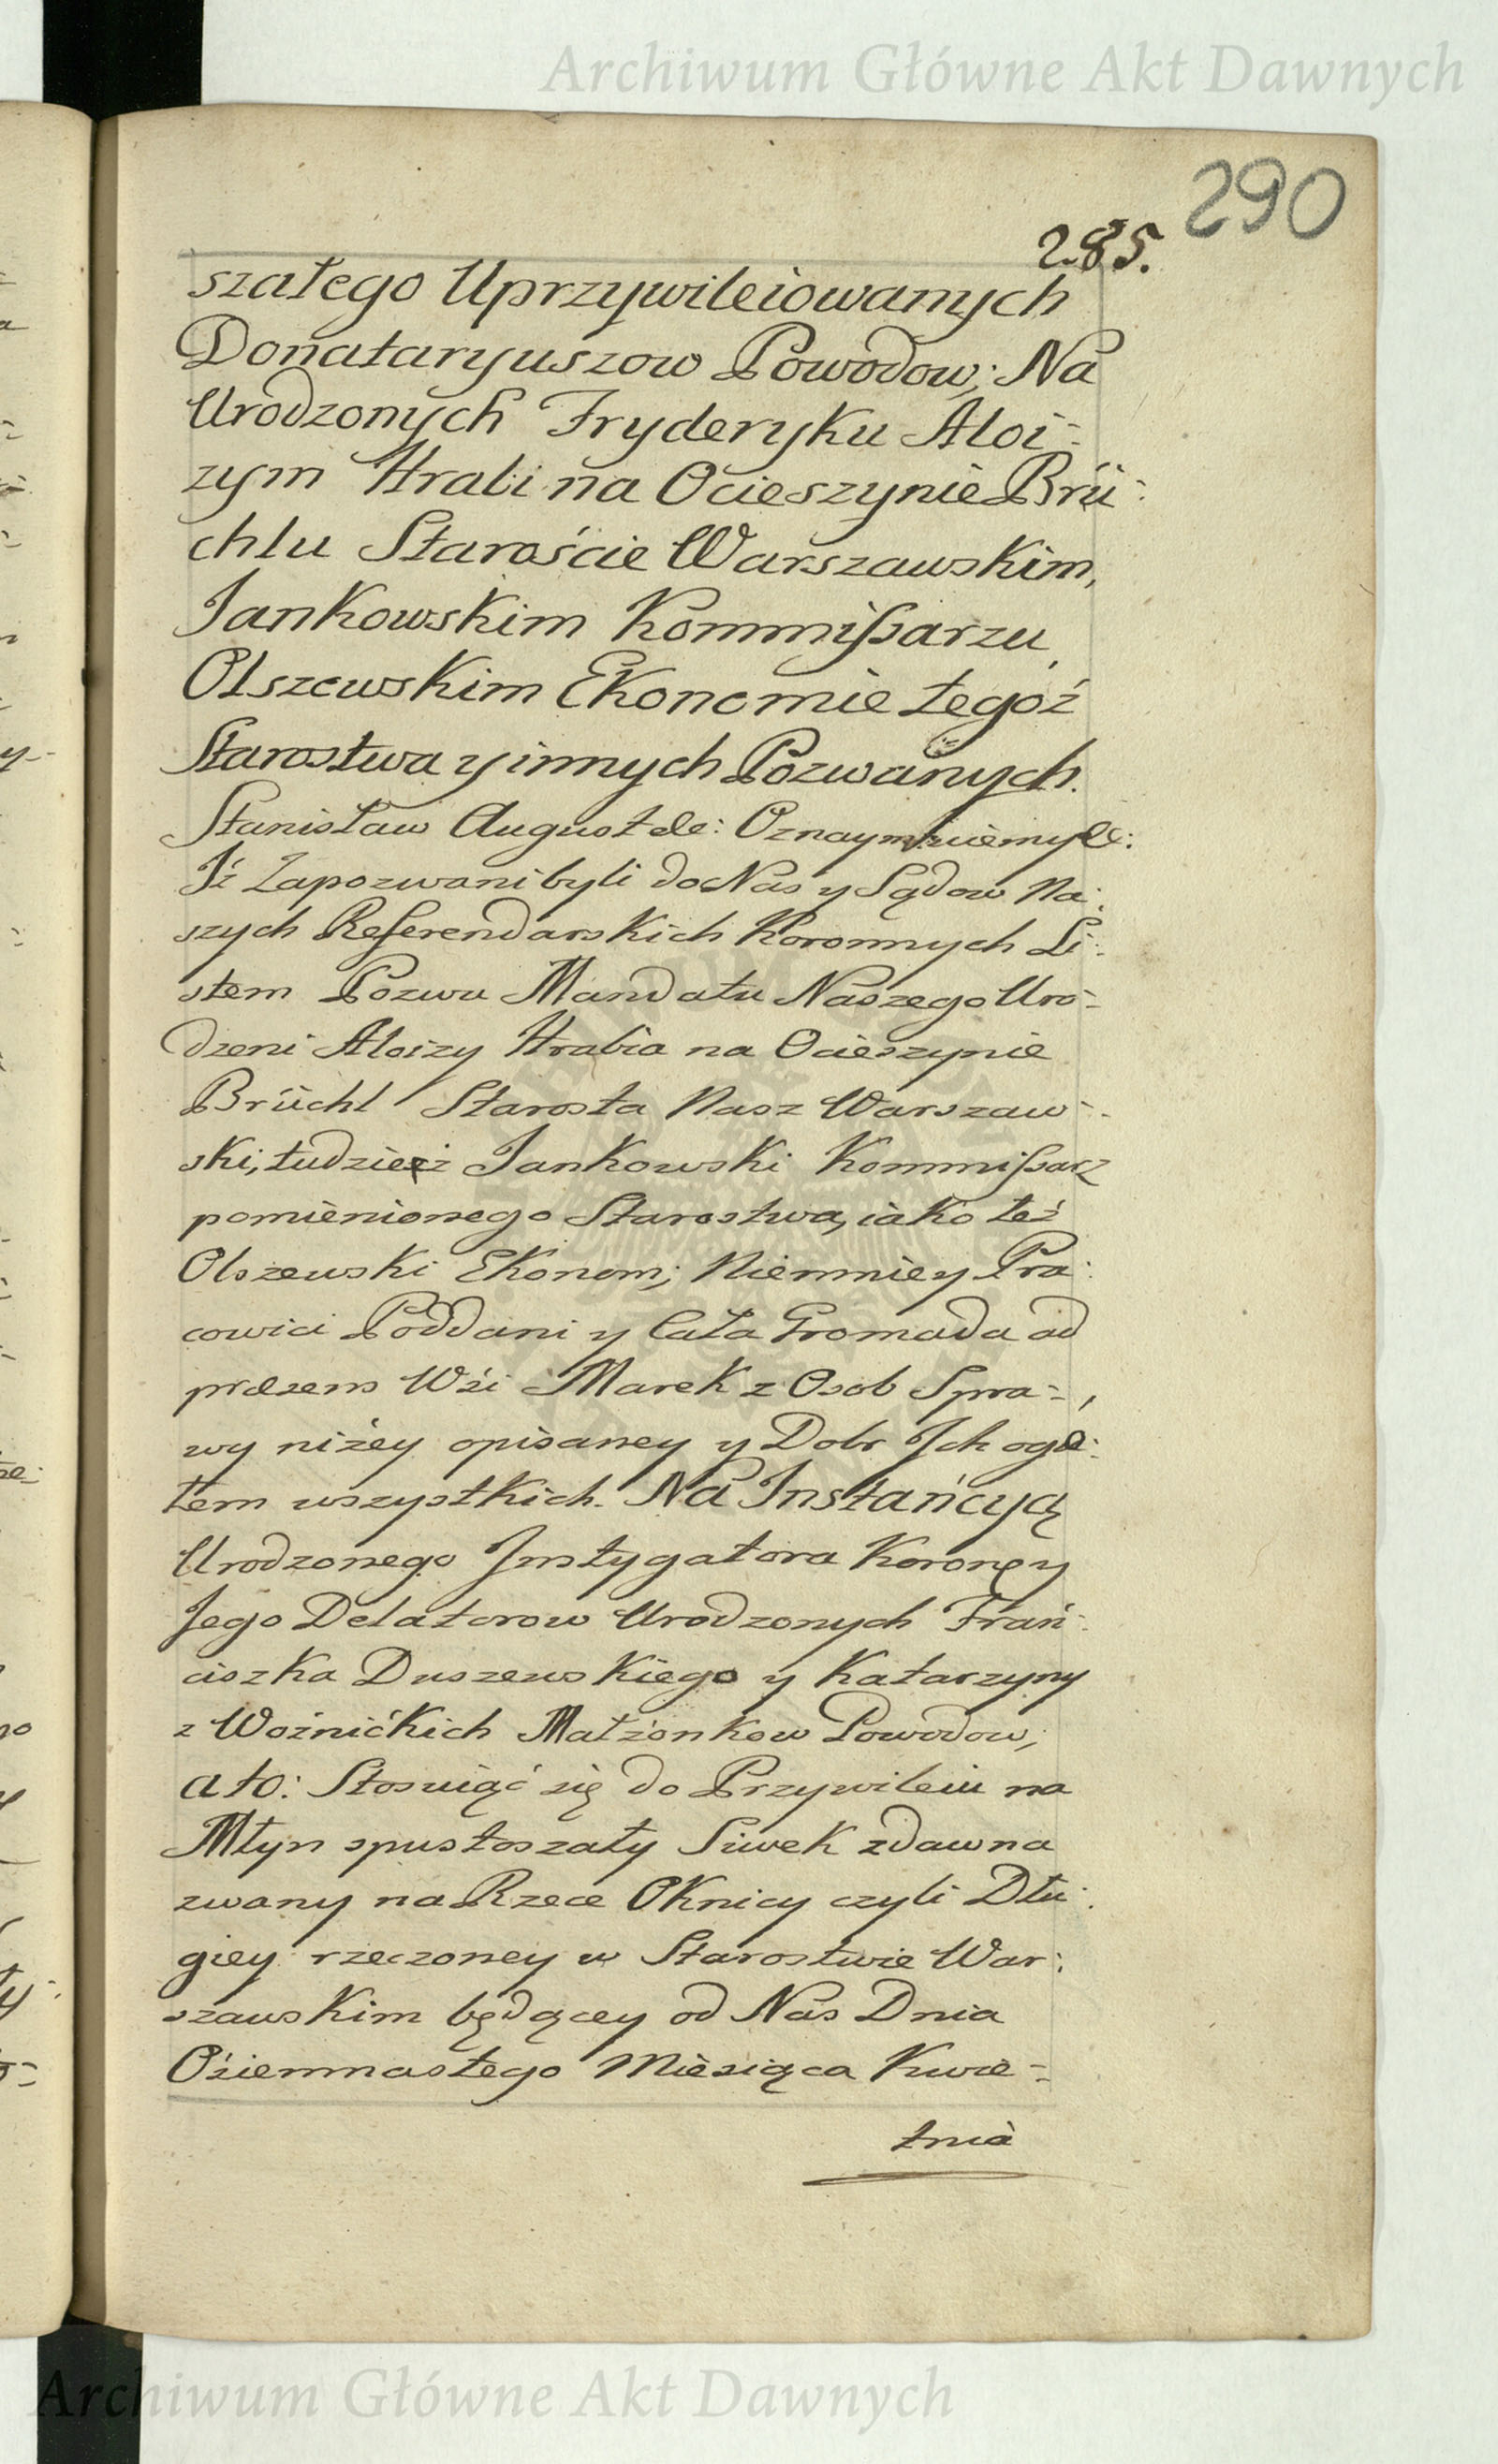 Archiwum Główne Akt Dawnych
290
285.
szałego Uprzywileiowanych
Donataryuszow Powodow; Na
Urodzonych Fryderyku Aloi-
zym Hrabi na Ocieszynie Brü-
chlu Starośćie Warszawskim,
Jankowskim Kommißarzu,
Olszewskim Ekonomie tegoż
Starostwa y innych Pozwanych.
Stanisław August &c: Oznaymuiemy &c:
Jż Zapozwani byli do Nas y Sądow Na:
szych Referendarskich Koronnych Li-
stem Pozwu Mandatu Naszego Uro-
dzeni Aloizy Hrabia na Ocieszynie
Brüchl Starosta Nasz Warszaw-
ski, tudzież Jankowski Kommißarz
pomienionego Starostwa, iako też
Olszewski Ekonom; Niemniey Pra-
cowici Poddani y Cała Gromada ad
præsens Wśi Marek z Osob Spra-
wy niżey opisaney y Dobr Jch ogo-
łem wszystkich. Na Jnstańcyą
Urodzonego Jnstygatora Koronny
Jego Delatorow Urodzonych Frań-
ciszka Duszewskiego y Katarzyny
z Woźnićkich Małżonkow Powodow,
a to: Stosuiąć się do Przywileiu na
Młyn spustoszały Siwek zdawna
zwany na Rzece Oknicy czyli Dłu-
giey rzeczoney w Starostwie War:
szawskim będącey od Nas Dnia
Ośiemnastego Miesiąca Kwie-
tnia
Archiwum Główne Akt Dawnych